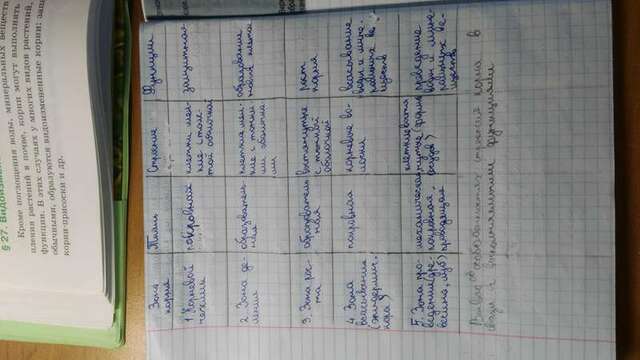 § 27. Видоизмен
Кроме поглощения воды, минеральных веществ
пления растений в почве, корни могут выполнять
функции. В этих случаях у многих видов растений,
обычными, образуются видоизмененные корни: запа
корни-присоски и др.
Зона корня Ткань Строение Функции
1. Корневой чехлик покровная клетки мелкие с толстой оболочкой защитная
2. Зона деления образовательная клетки мелкие с тонкими оболочками образование новых клеток
3. Зона роста образовательная вытянутые с тонкой оболочкой рост корня
4. Зона всасывания (эпидермис, кора) покровная корневые волоски всасывание воды и минеральных веществ
5. Зона проведения (древесина, луб) механическая покровная, проводящая клетки вытянутые (форма сосуда) проведение воды и минеральных веществ
Вывод об особенностях строения корня в
связи с выполняемыми функциями